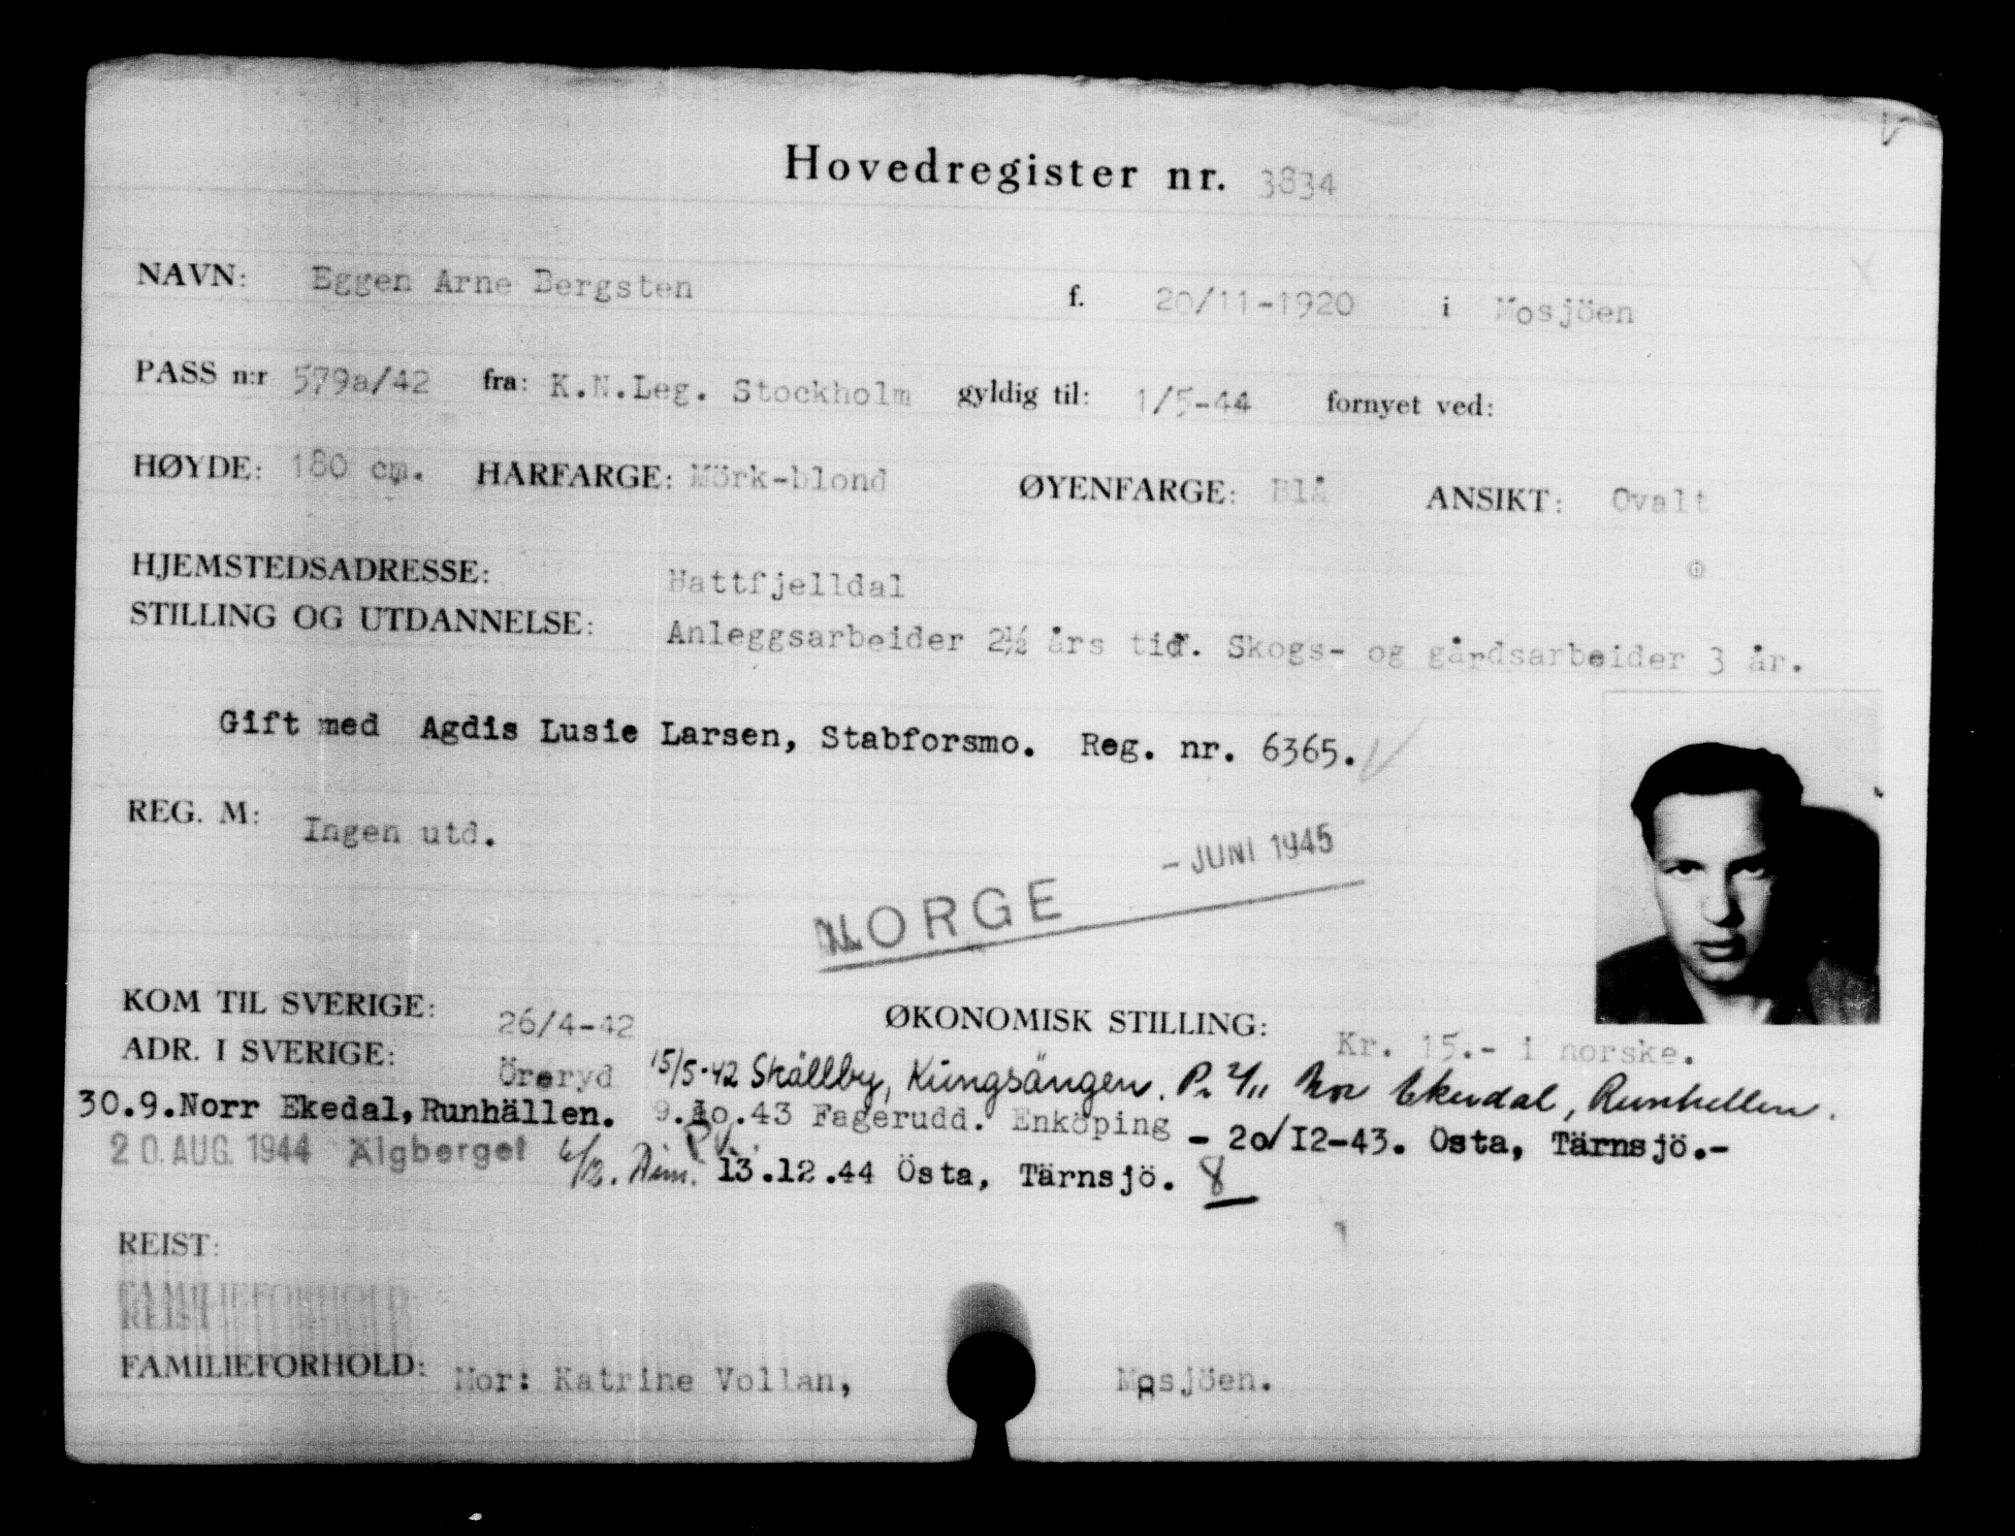 Hovedregister nr. 3834
NAVN: Eggen Arne Bergsten f. 20/11-1920 i Mosjöen
PASS n:r 579a/42 fra: K.N.Leg. Stockholm gyldig til: 1/5-44 fornyet ved:
HØYDE: 180 cm. HARFARGE: Mörk-blond ØYENFARGE: Blå ANSIKT: Ovalt
HJEMSTEDSADRESSE: Hattfjelldal
STILLING OG UTDANNELSE: Anleggsarbeider 2½ års tid. Skogs- og gårdsarbeider 3 år.
Gift med Agdis Lusie Larsen, Stabforsmo. Reg. nr. 6365.
REG. M: Ingen utd.
- JUNI 1945
NORGE
KOM TIL SVERIGE: 26/4-42 ØKONOMISK STILLING: Kr. 15.- i norske.
ADR. I SVERIGE: Öreryd 15/5-42 Skällby, Kungsängen. P. 2/11 Nor Ekedal, Runhellen.
30.9.Norr Ekedal,Runhällen. 9.10.43 Fagerudd. Enköping - 20/12-43. Östa, Tärnsjö.-
20. AUG. 1944 Älgberget 6/12. 13.12.44 Östa, Tärnsjö. 8
REIST:
FAMILIEFORHOLD:
REIST
FAMILIEFORHOLD: Mor: Katrine Vollan, Mosjöen.